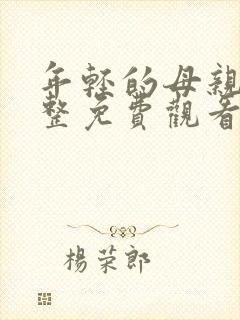 年轻的母親
整免費觀看
楊荣郎